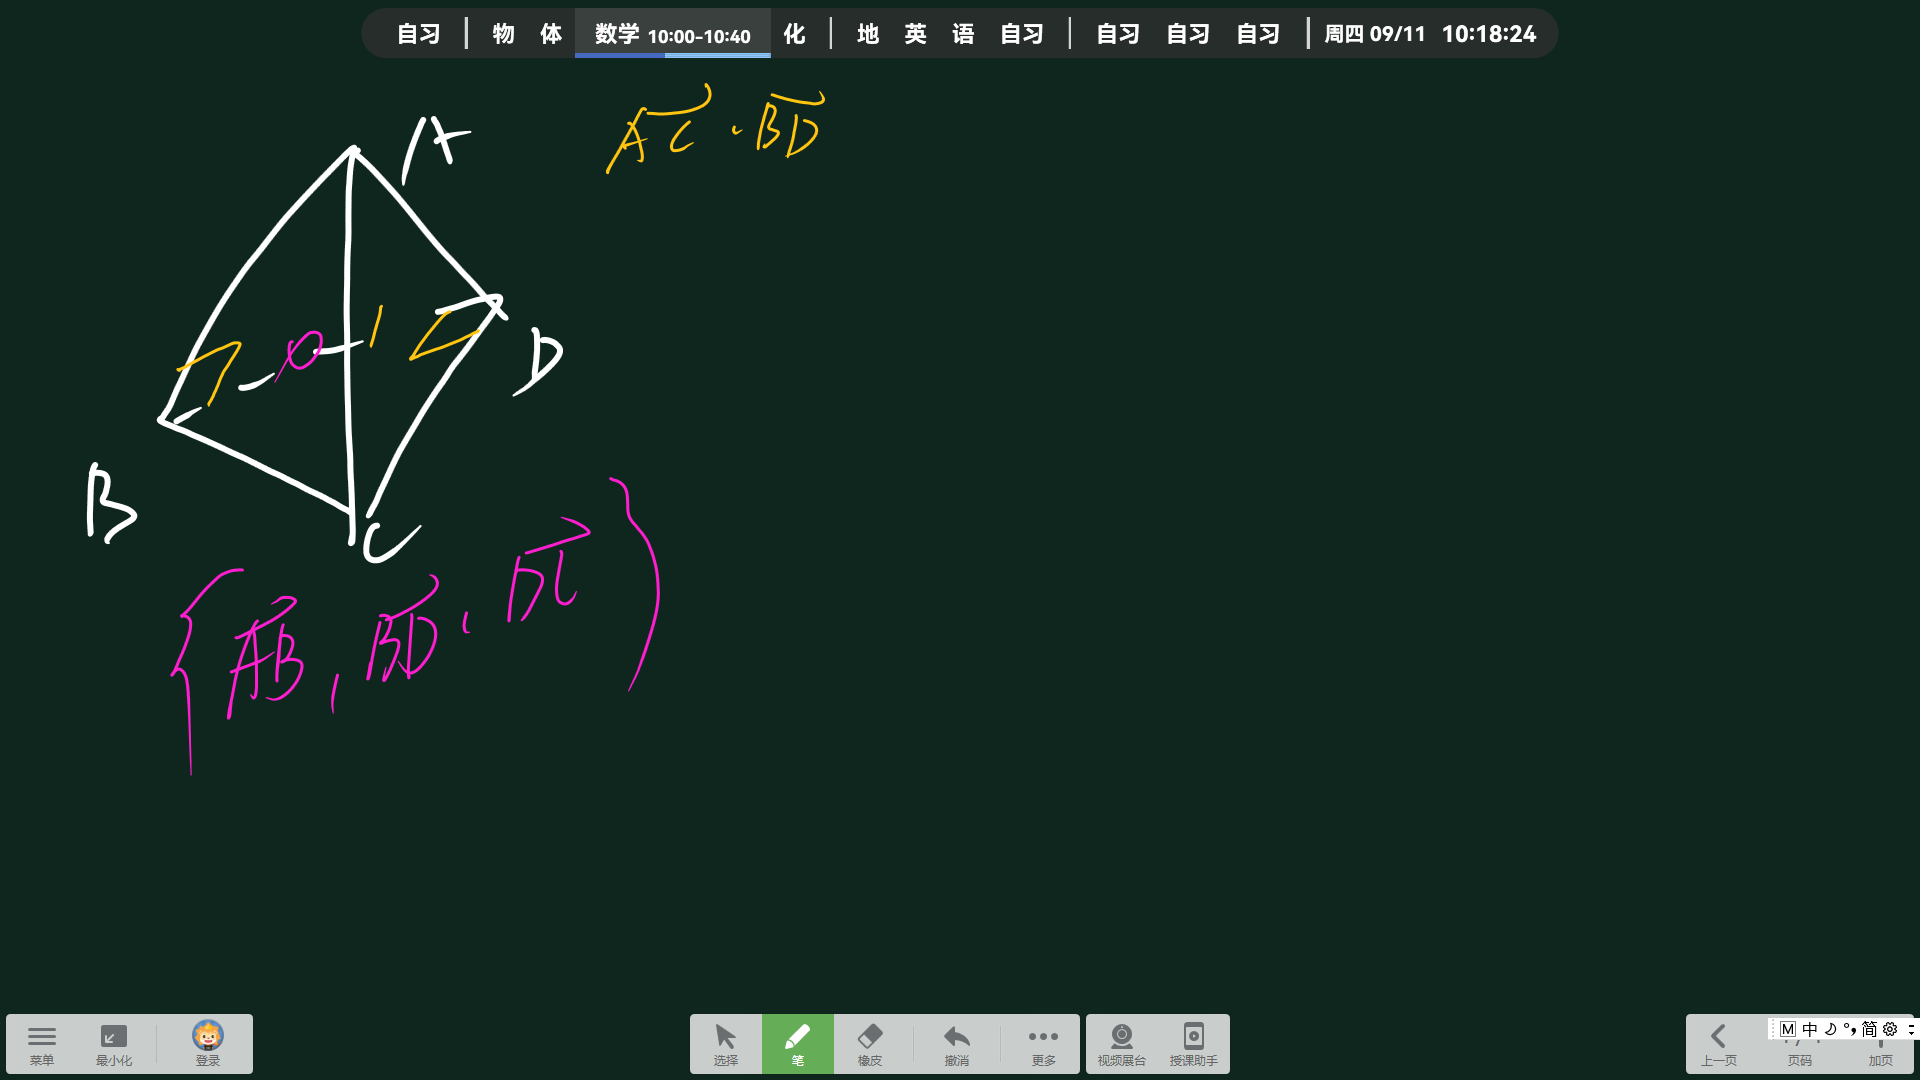 自习 | 物 体 数学 10:00-10:40 化 | 地 英 语 自习 | 自习 自习 自习 | 周四 09/11 10:18:24
AC · BD
A
D
B
C
{AB, BD, DC}
M 中 简
菜单 最小化 登录 选择 笔 橡皮 撤消 更多 视频展台 授课助手 上一页 页码 加页